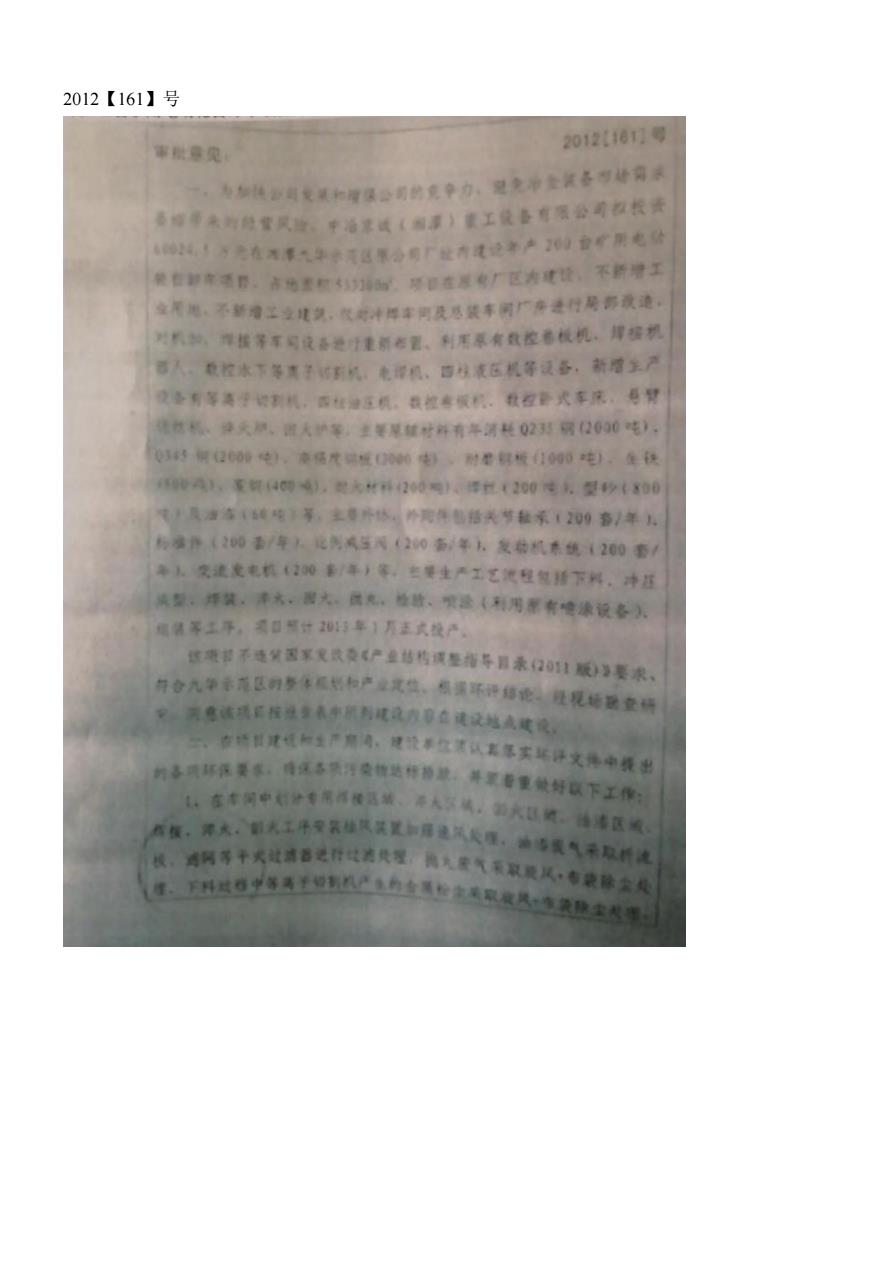 2012【161】号
2012[161]号
审批意见：
一、为加快公司发展和增强公司的竞争力，避免冶金装备市场需求
萎缩带来的经营风险，中冶京诚（湘潭）重工设备有限公司拟投资
60024.5 万元在湘潭九华示范区原公司厂址内建设年产 200 台矿用电动
轮自卸车项目，占地面积 533300㎡。项目在原有厂区内建设，不新增工
业用地，不新增工业建筑，仅对冲焊车间及总装车间厂房进行局部改造，
对机加、焊接等车间设备进行重新布置，利用原有数控卷板机、焊接机
器人、数控水下等离子切割机、电焊机、四柱液压机等设备，新增生产
设备有等离子切割机、四柱油压机、数控卷板机、数控卧式车床、悬臂
机、淬火炉、回火炉等，主要原辅材料有年消耗 Q235 钢(2000 吨)、
Q345 钢(2000 吨)、高强度钢板(3000 吨)、耐磨钢板(1000 吨)、生铁
(800 吨)、废钢(400 吨)、耐火材料(200 吨)、焊丝（200 吨）、型砂（800
吨）及油漆（60 吨）等，主要外协、外购件包括关节轴承（200 套/年）、
标准件（200 套/年）、比例减压阀（200 套/年）、发动机系统（200 套/
年）、交流发电机（200 套/年）等，主要生产工艺流程包括下料、冲压
成型、焊装、淬火、回火、抛丸、检验、喷涂（利用原有喷涂设备）、
组装等工序。项目预计 2013 年 1 月正式投产。
该项目不违背国家发改委《产业结构调整指导目录(2011 版)》要求，
符合九华示范区的整体规划和产业定位。根据环评结论，经现场踏查研
究，同意该项目按报告表中所列建设内容在建设地点建设。
二、在项目建设和生产期间，建设单位须认真落实环评文件中提出
的各项环保要求，确保各项污染物达标排放，并要着重做好以下工作：
1、在车间中划分专用焊接区域、淬火区域、回火区域、油漆区域，
焊接、淬火、回火工序安装抽风装置加强通风处理，油漆废气采取折流
板、滤网等干式过滤器进行过滤处理，抛丸废气采取旋风+布袋除尘处
理，下料过程中等离子切割机产生的金属粉尘采取旋风+布袋除尘处理。